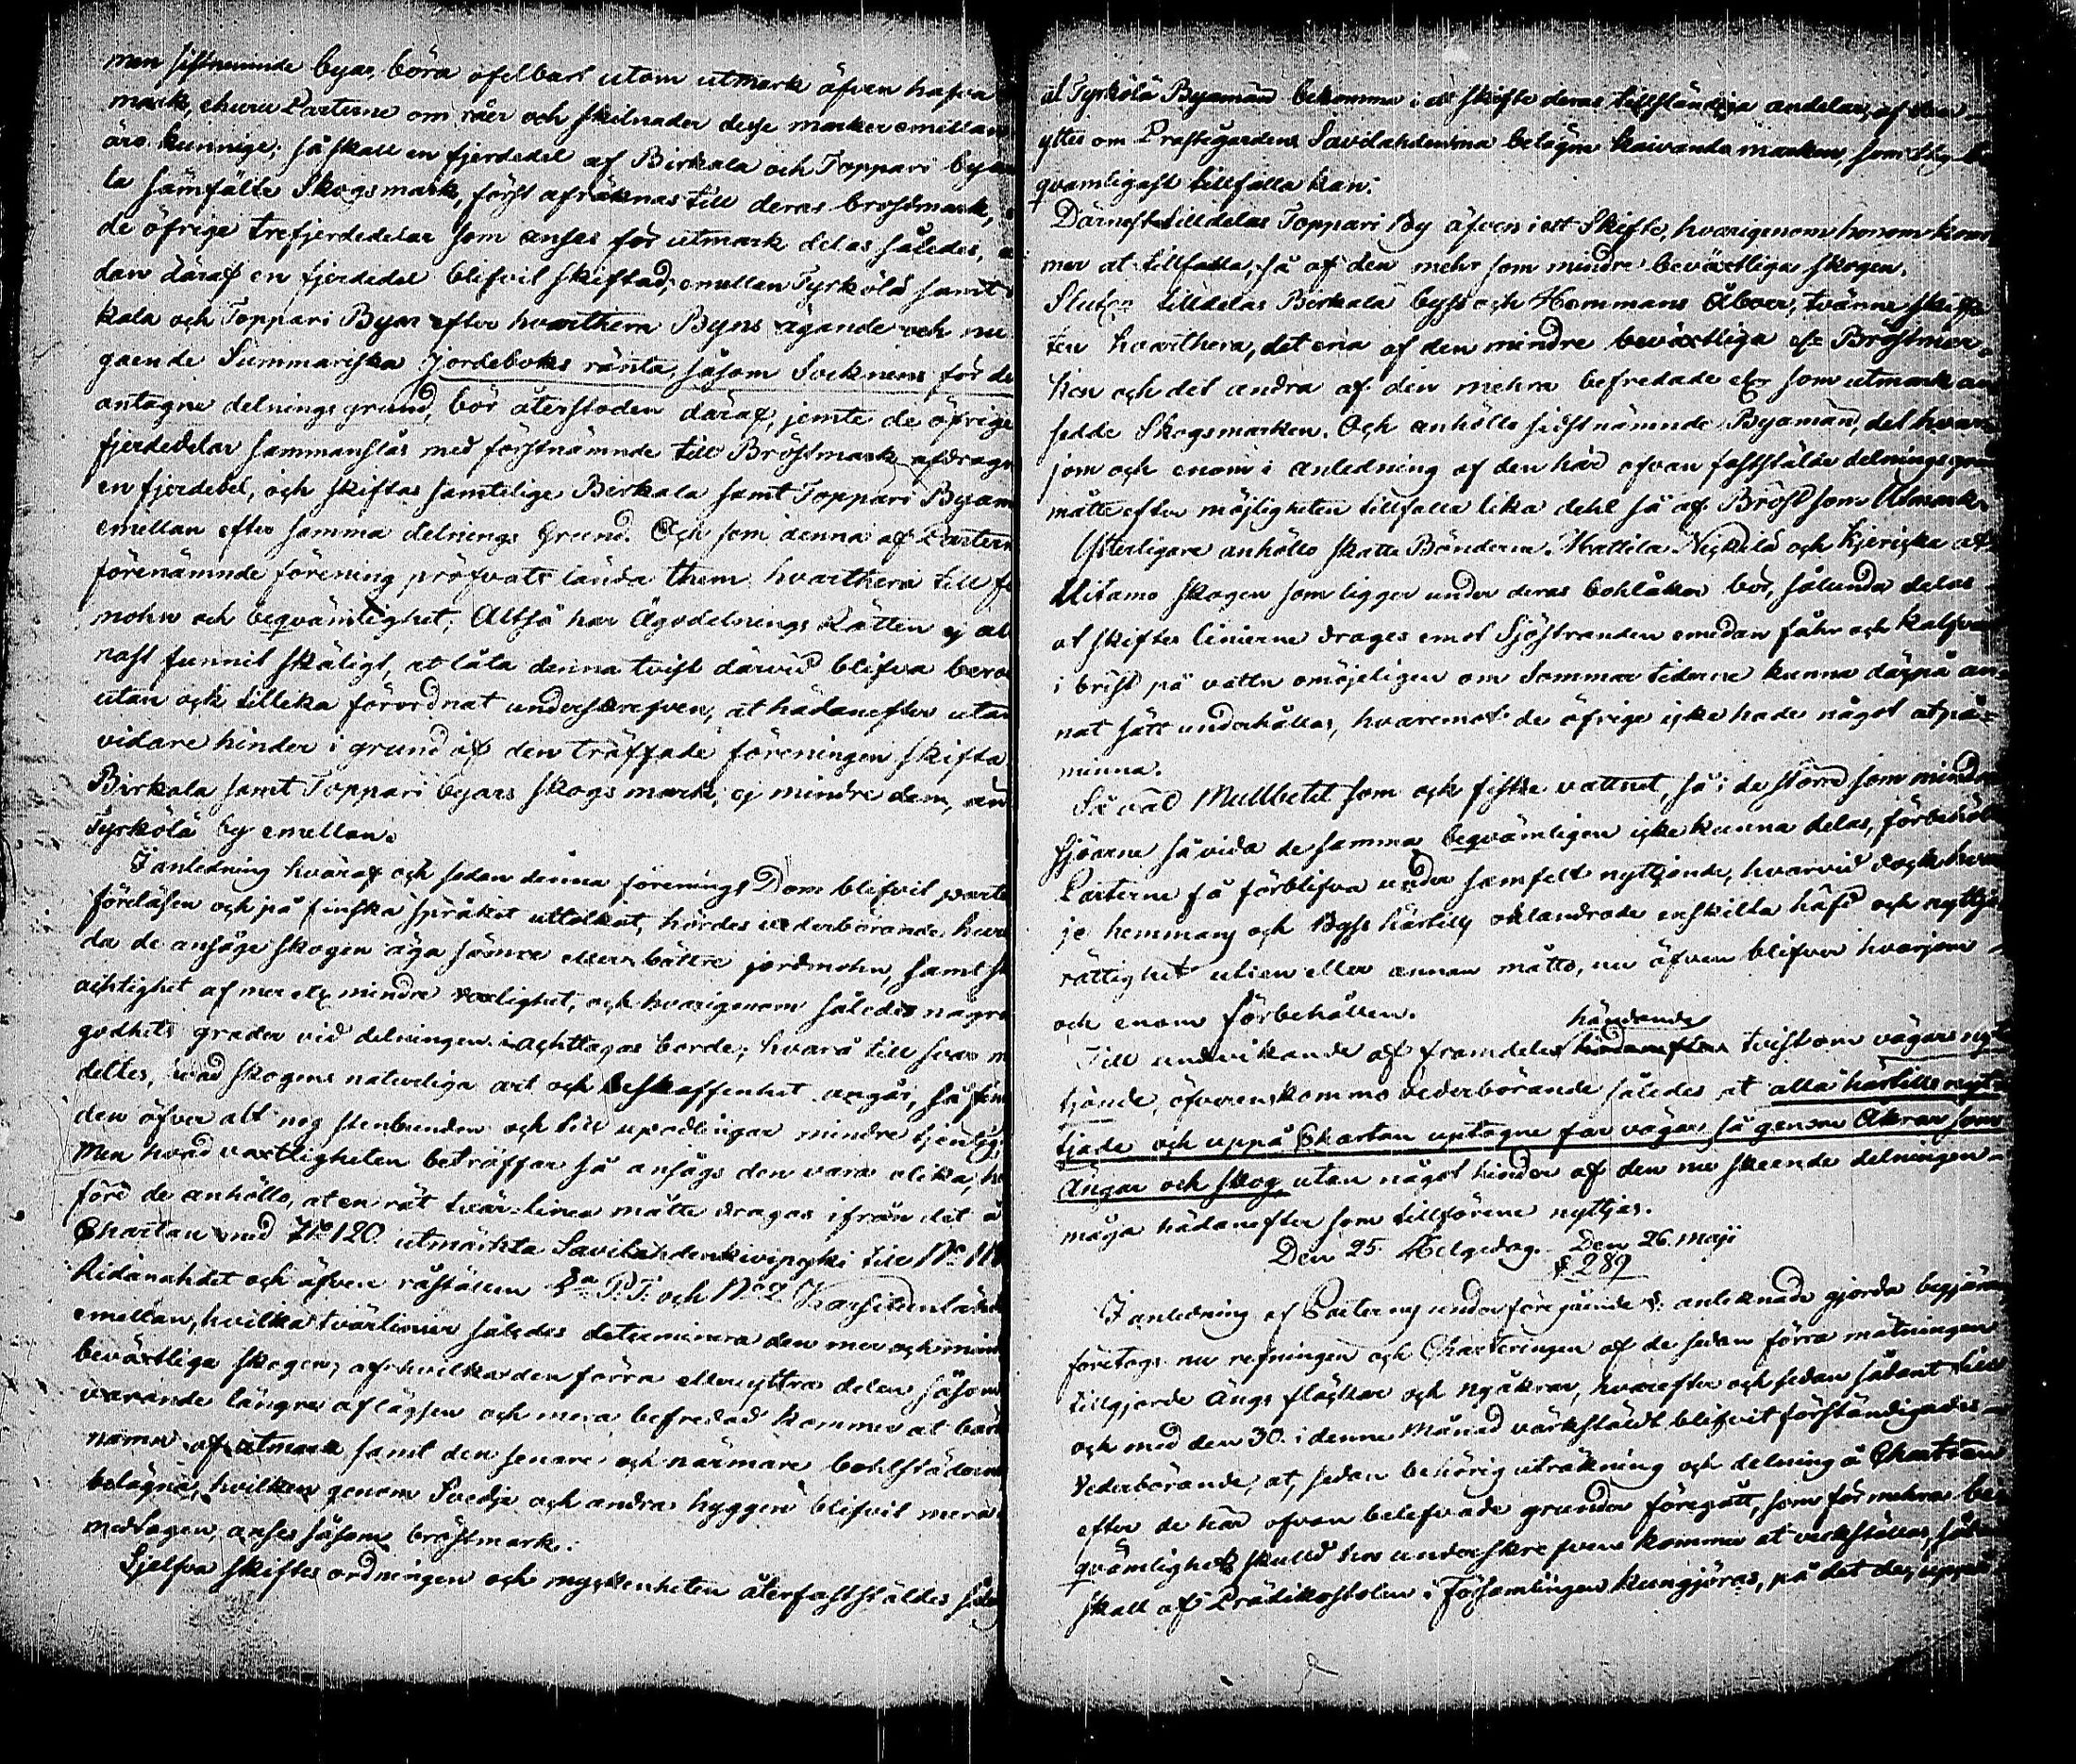 men sistnemnde byar böra ofelbart utom utmark äfven hafva
mark, ehuru Parterne om råer och skilnader desse marker emillan
äro kunnige; så skall en fjerdedel af Birkala och Toppari byar
la samfälte Skogsmark, först afräknas till deras bröstmark,
de öfrige trefjerdedelar som anses för utmark delas således,
dan däraf en fjerdedel blifvit skiftad, emellan Tyrkölä samt
kala och Toppari Byar efter hvarthera Byns ägande och nu
gaende Summariska jordeboks ränta, såsom Socknens för de
antagne delnings grund, bör återstoden däraf, jemte de öfrige
fjerdedelar sammanslås med förstnämnde till Bröstmark afdragn
en fjerdedel, och skiftas samtelige Birkala samt Toppari Byam
emellan efter samma delnings Grund. Och som denna af Partern
förenämnde förening pröfvats lända them hvarthera till
mohn och beqvämlighet; Altså har Ägodelnings Rätten ej al
nast funnit skäligt, at låta denna tvist därvid blifva bero
utan och tillika förordnat underskrefven, at hädanefter utan
vidare hinder i grund af den träffade föreningen skifta
Birkala samt Toppari byars skogs mark, ej mindre dem, än
Tyrkölä by emellan.
I anledning hvaraf och sedan denna förenings Dom blifvit parte
föreläsen och på finska språket uttolkat, hördes vederbörande huru
da de ansåge skogen äga sämre eller bättre jordmohn, samt sk
aktighet af mer elr mindre växtlighet, och hvarigenom således någre
godhets grader vid delningen iakttagas borde; hvarå till svar m
deltes, hvad skogens naturliga art och beskaffenhet angår, så
den öfver alt nog stenbunden och till upodlingar mindre tjenlig,
Men hvad växtligheten beträffar så ansågs den vara olika, h
före de anhöllo, at en rät tvär linea måtte dragas ifrån det å
Chartan med No 120 utmärkta Savilahdenkivipyki till No 118
Ridanahdet och äfven råställen No och No 2
emellan, hvilka tvärlinier således determinera den mer och mind
beväxtliga skogen, af hvilka den förra eller yttra delen såsom
varande längre aflägsen och mera befredad kommer at bära
namn af utmark samt den senare och närmare bohlstäderne
belägna, hvilken genom Svedje och andra hyggen blifvit mera
medtagen, anses såsom bröstmark.
Sjelfva skiftes ordningen och myckenheten återfastställdes såled
at Tyrkölä Byamän bekomma i ett skifte deras tillständiga andelar, af den
yttre om Prästgårdens Savilahdenoma belägne Kaivanda marken, som
qvämligast tillfalla kan.
Därnäst tilldelas Toppari By äfven i ett Skifte, hvarigenom honom kom
mer at tillfalla, så af den mehr som mindre beväxtliga skogen.
Slutn tilldelas Birkala byss och Hemmans Åboer, tvänne skif
ten hvarthera, det ena af den mindre beväxtliga elr Bröstmar
ken och det andra af den mehra befredade elr som utmark an
sedde Skogsmarken. Och anhölle sidstnämnde Byamän, det hvar
jom och enom i anledning af den här ofvan fastställde delnings grun
måtte efter möjligheten tillfalla lika dehl så af Bröst som Utmark.
Ytterligare anhöllo skatte Bönderne Mattila Nickilä och Kjeriska at
Uitamo skogen som ligger under deras bohlåker bör, sålunda delas
at skiftes linierne drages emot Sjöstranden emedan fåhr och kalfvar
i brist på vattn omöjeligen om Sommar tiderne kunna därpå an
nat sätt underhållas, hvaremot de öfrige icke hade något at på
minna.
Så väl Mullbetet som och fiske vattnet, så i de större som mindre
sjöarne så vida de samma beqvämligen icke kunna delas, förbehöll
Parterne få förblifva under samfelt nyttjande, hvarvid dock hvar
je hemmans och Byss härtills oklandrade enskilta häfd och nyttjo
rättighet uti en eller annan måtto, nu äfven blifver hvarjom
och enom förbehållen.
händande
Till undvikande af framdeles hädanefter tvist om vägars nyt
tjande, öfverenskommo vederbörande således at alla härtills nyt
tjade och uppå Chartan uptagne far vägar så genom Åkrar som
Ängar och skog, utan något hinder af den nu skeende delningen
måga hädanefter som tillförene nyttjas.
Den 25. Helgedag. Den 26. maji
§ 289
I anledning af Parternes under föregående §. anteknade gjorda begjäran
företogs nu refningen och Charteringen af de sedan förra mätningen
tillgjorde ängs fläckar och nyåkrar, hvarefter och sedan sådant till
och med den 30. i denne Månad värkställdt blifvit förständigades
Vederbörande, at, sedan behörig uträkning och delning å Chartan
efter de här ofvan belefvade grunder föregått, som för mehra be
qvämlighets skulld hos underskrefven kommer at verkställas,
skall af Prädikostolen i Församlingen kungjöras, på det de, uppå